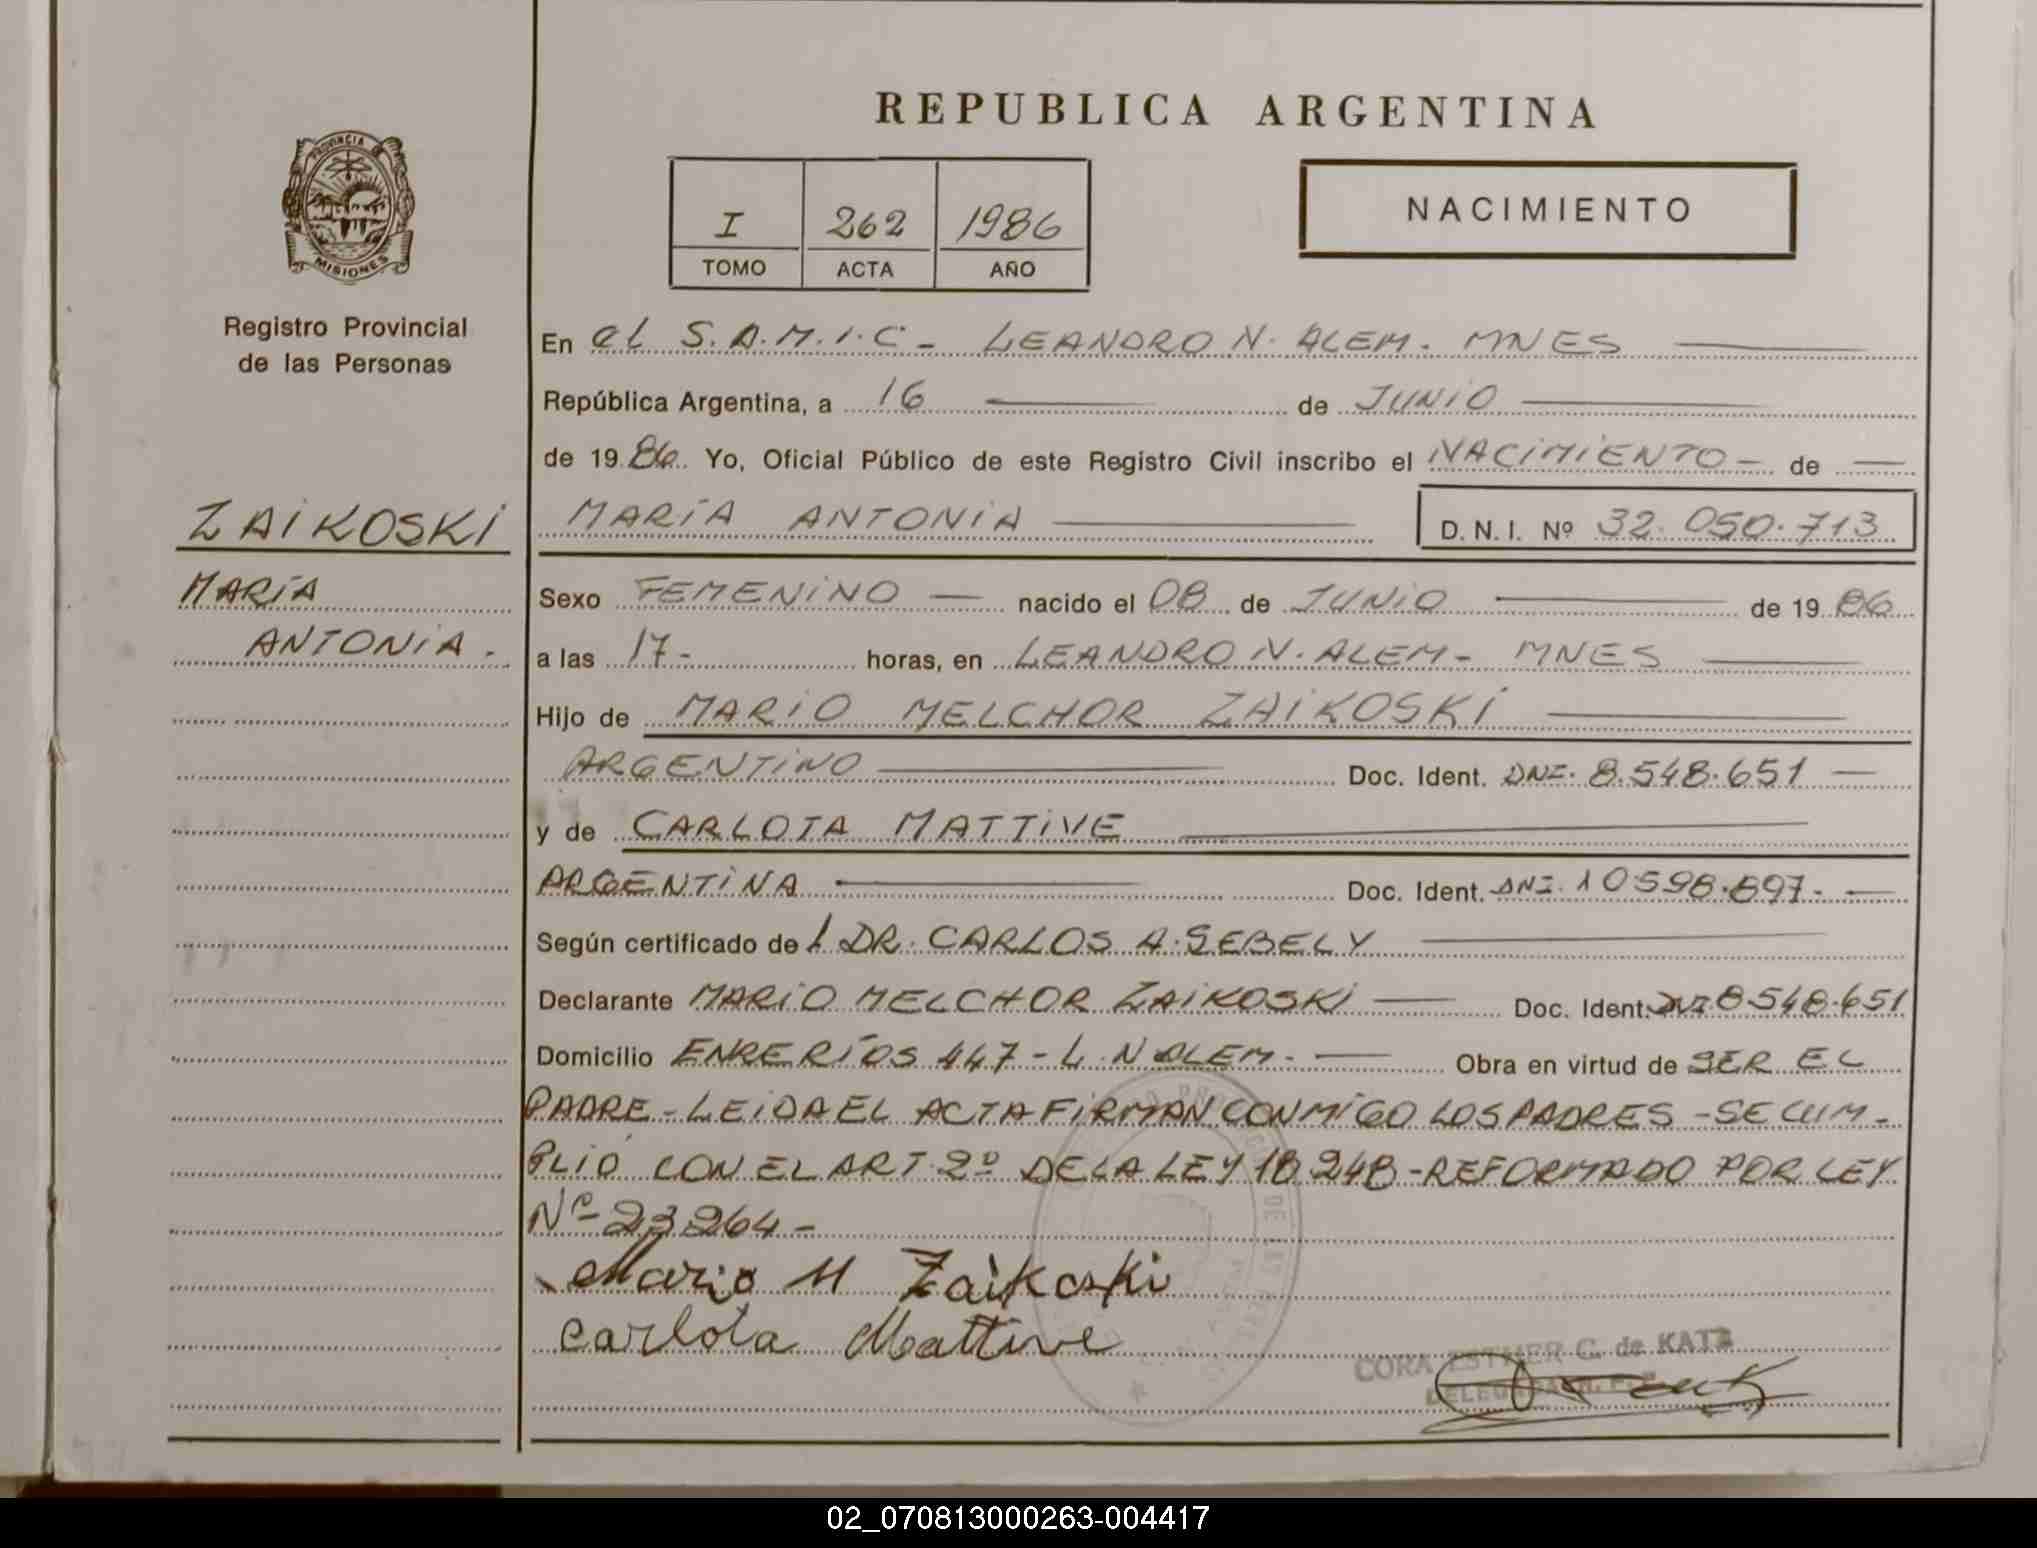 REPUBLICA ARGENTINA
PROVINCIA
MISIONES
Registro Provincial
de las Personas
I 262 1986
TOMO ACTA AÑO
NACIMIENTO
En el S.A.M.I.C - LEANDRO N. ALEM. MNES
República Argentina, a 16 de JUNIO
de 1986. Yo, Oficial Público de este Registro Civil inscribo el NACIMIENTO - de
MARÍA ANTONIA D. N. I. Nº 32.050.713
ZAIKOSKI
MARÍA
ANTONIA.
Sexo FEMENINO nacido el 08 de JUNIO de 1986
a las 17- horas, en LEANDRO N. ALEM - MNES
Hijo de MARIO MELCHOR ZAIKOSKI
ARGENTINO Doc. Ident. DNI. 8.548.651
y de CARLOTA MATTIVE
ARGENTINA Doc. Ident. DNI. 10598.897.
Según certificado de l DR. CARLOS A. SEBELY
Declarante MARIO MELCHOR ZAIKOSKI Doc. Ident. DNI 8.548.651
Domicilio ENRERÍOS 447 - L. N ALEM. Obra en virtud de SER EL
PADRE - LEIDA EL ACTA FIRMAN CONMIGO LOS PADRES - SE CUM-
PLIÓ CON EL ART. 2º DE LA LEY 18.248 - REFORMADO POR LEY
Nº 23.264 -
Mario M Zaikoski
Carlota Mattive
CORA ESTHER C. de KATZ
02_070813000263-004417